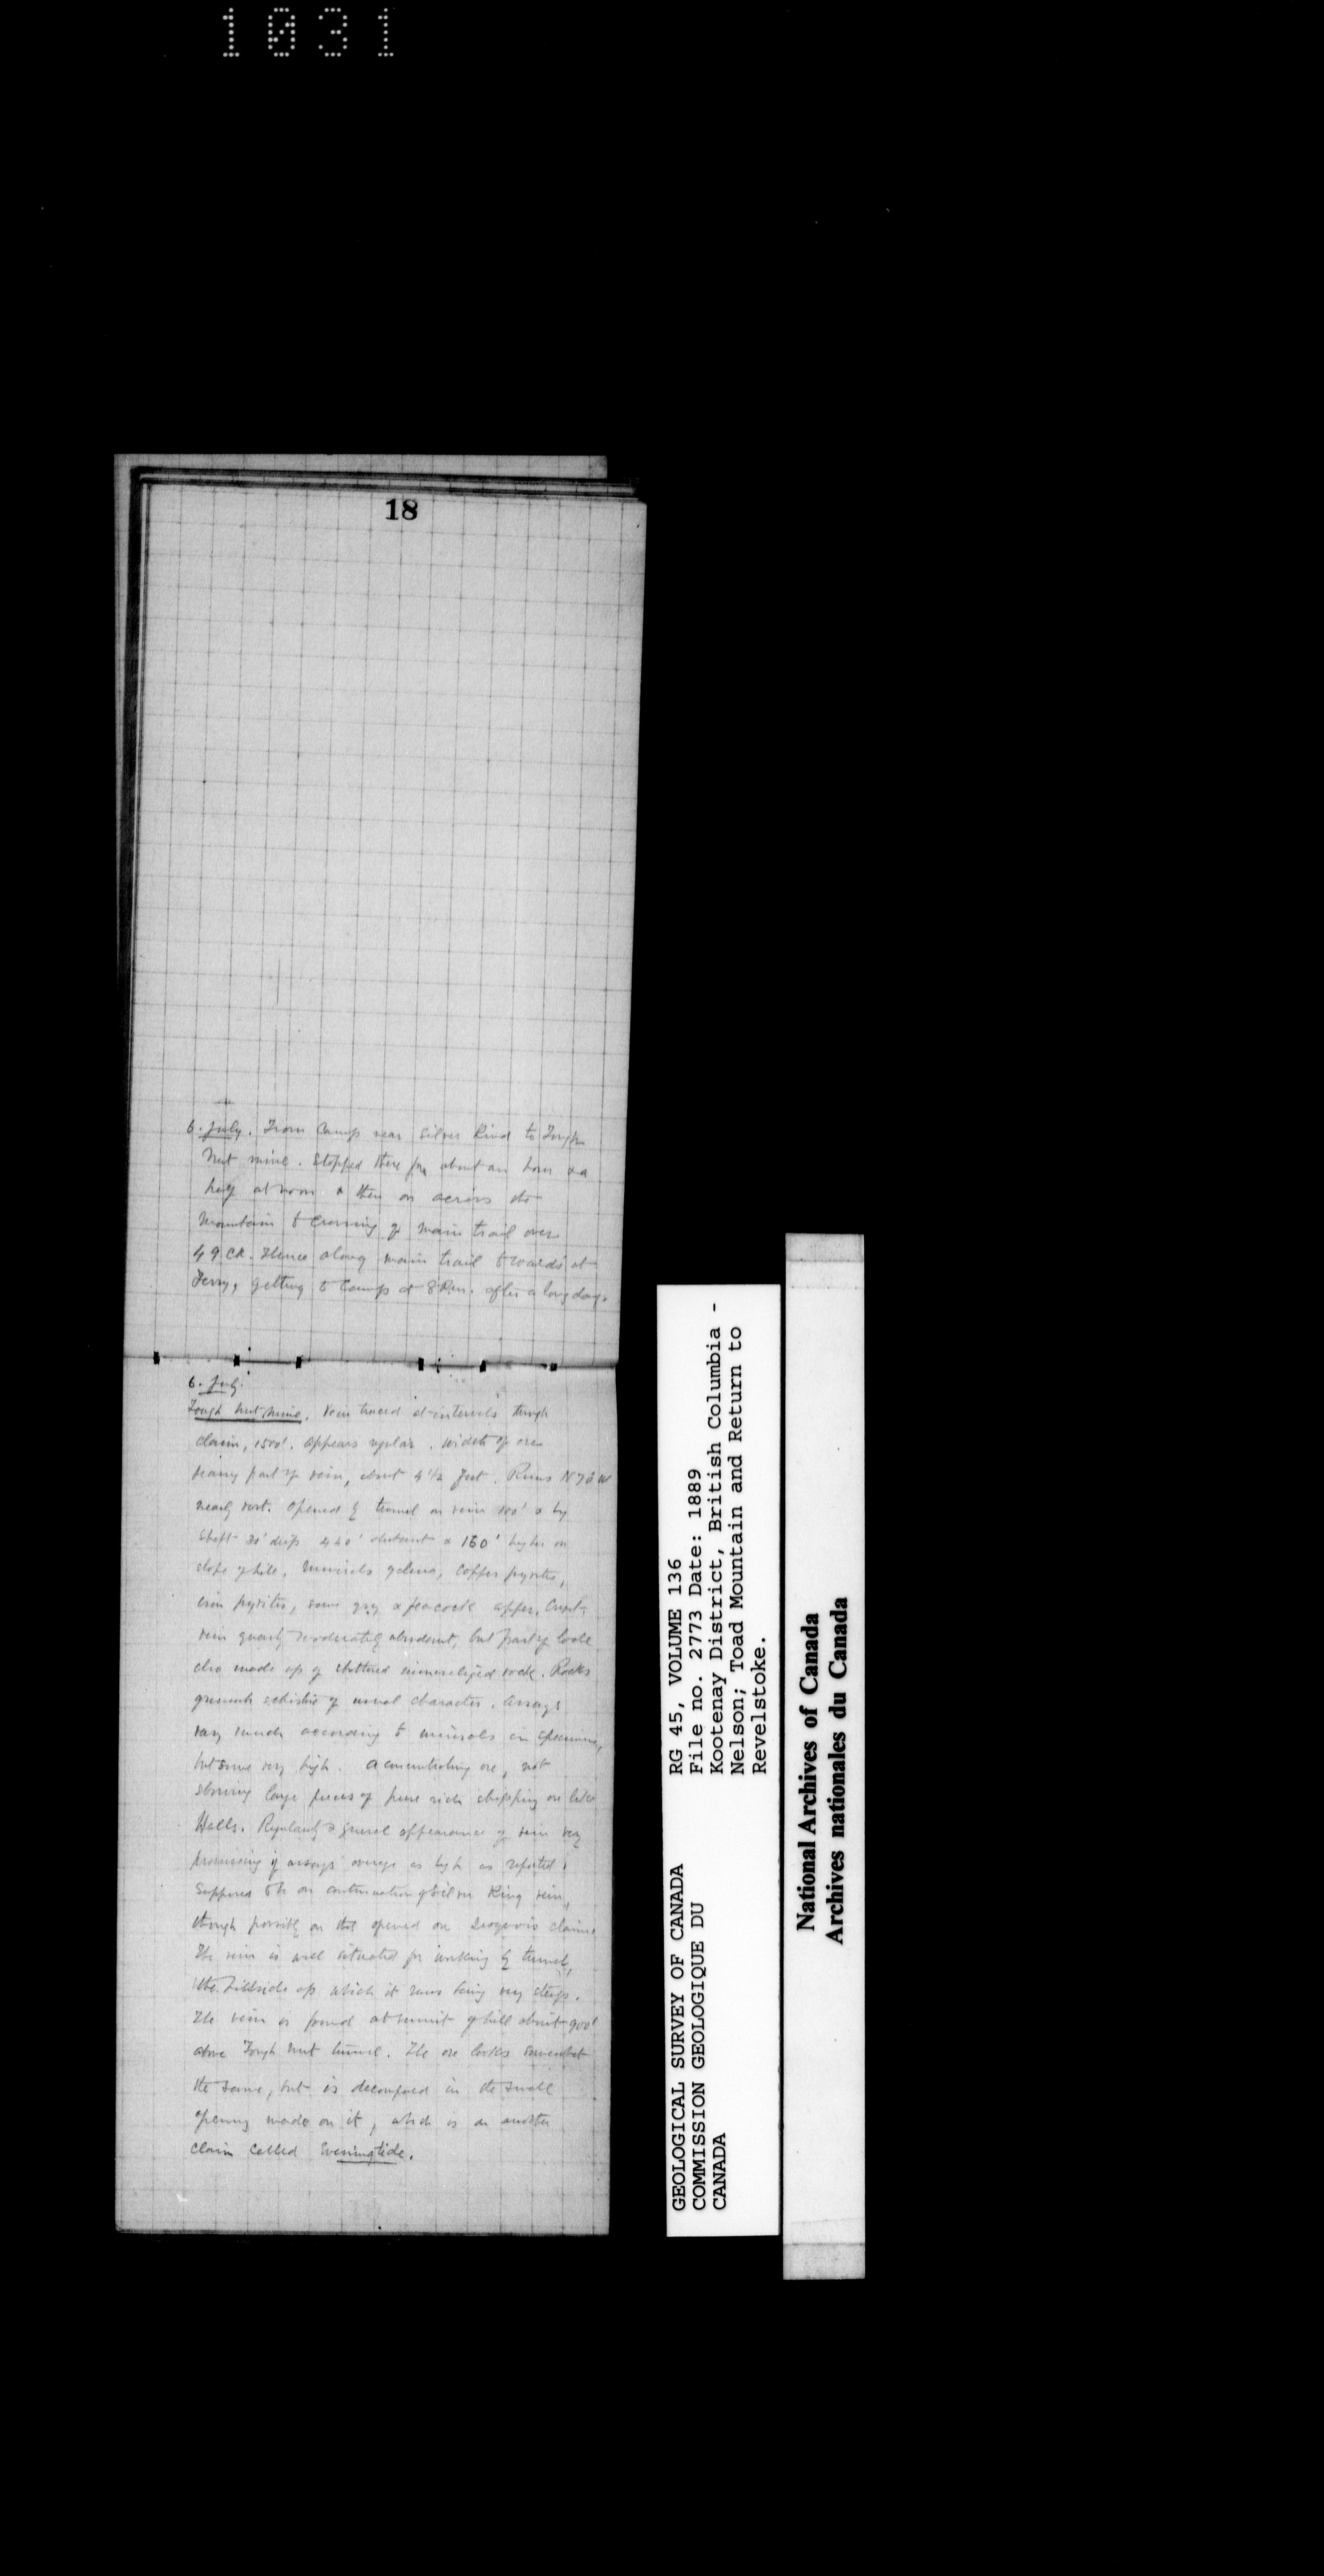 1031
18
6. July. From Camp near Silver King to Tough
Nut mine. Stopped there for about an hour & a
half at noon & then on across the
Mountain to Crossing of main trail over
49 Ck. Thence along main trail towards
Ferry, getting to Camp at 8 P.m. after a long day.
6. July.
Tough Nut Mine. Vein traced at intervals through
claim, 1500'. Appears regular. Width of ore
bearing part of vein, about 4 1/2 feet. Runs N 70 W
nearly vert. Opened by tunnel on vein 100' & by
shaft 30' deep 440' distant & 150' higher on
slope of hill. Minerals galena, copper pyrites,
iron pyrites, some grey & peacock copper.
vein quartz moderately abundant, but part of lode
also made up of shattered mineralized rock. Rocks
greenish schistose of usual character. Assays
vary much according to minerals in specimens,
but some very high. A concentrating ore, not
showing large pieces of pure rich shipping ore like
Halls. Regularity & general appearance of vein very
promising if assays average as high as reported.
Supposed to be on continuation of Silver King vein,
though possibly on that opened on Iroquois claim.
The vein is well situated for working by tunnel,
the hillside up which it runs being very steep.
The vein is found at summit of hill about 900'
above Tough Nut tunnel. The ore looks somewhat
the same, but is decomposed in the small
opening made on it, which is on another
claim called Eveningtide.
GEOLOGICAL SURVEY OF CANADA
COMMISSION GEOLOGIQUE DU
CANADA
RG 45, VOLUME 136
File no. 2773 Date: 1889
Kootenay District, British Columbia -
Nelson; Toad Mountain and Return to
Revelstoke.
National Archives of Canada
Archives nationales du Canada